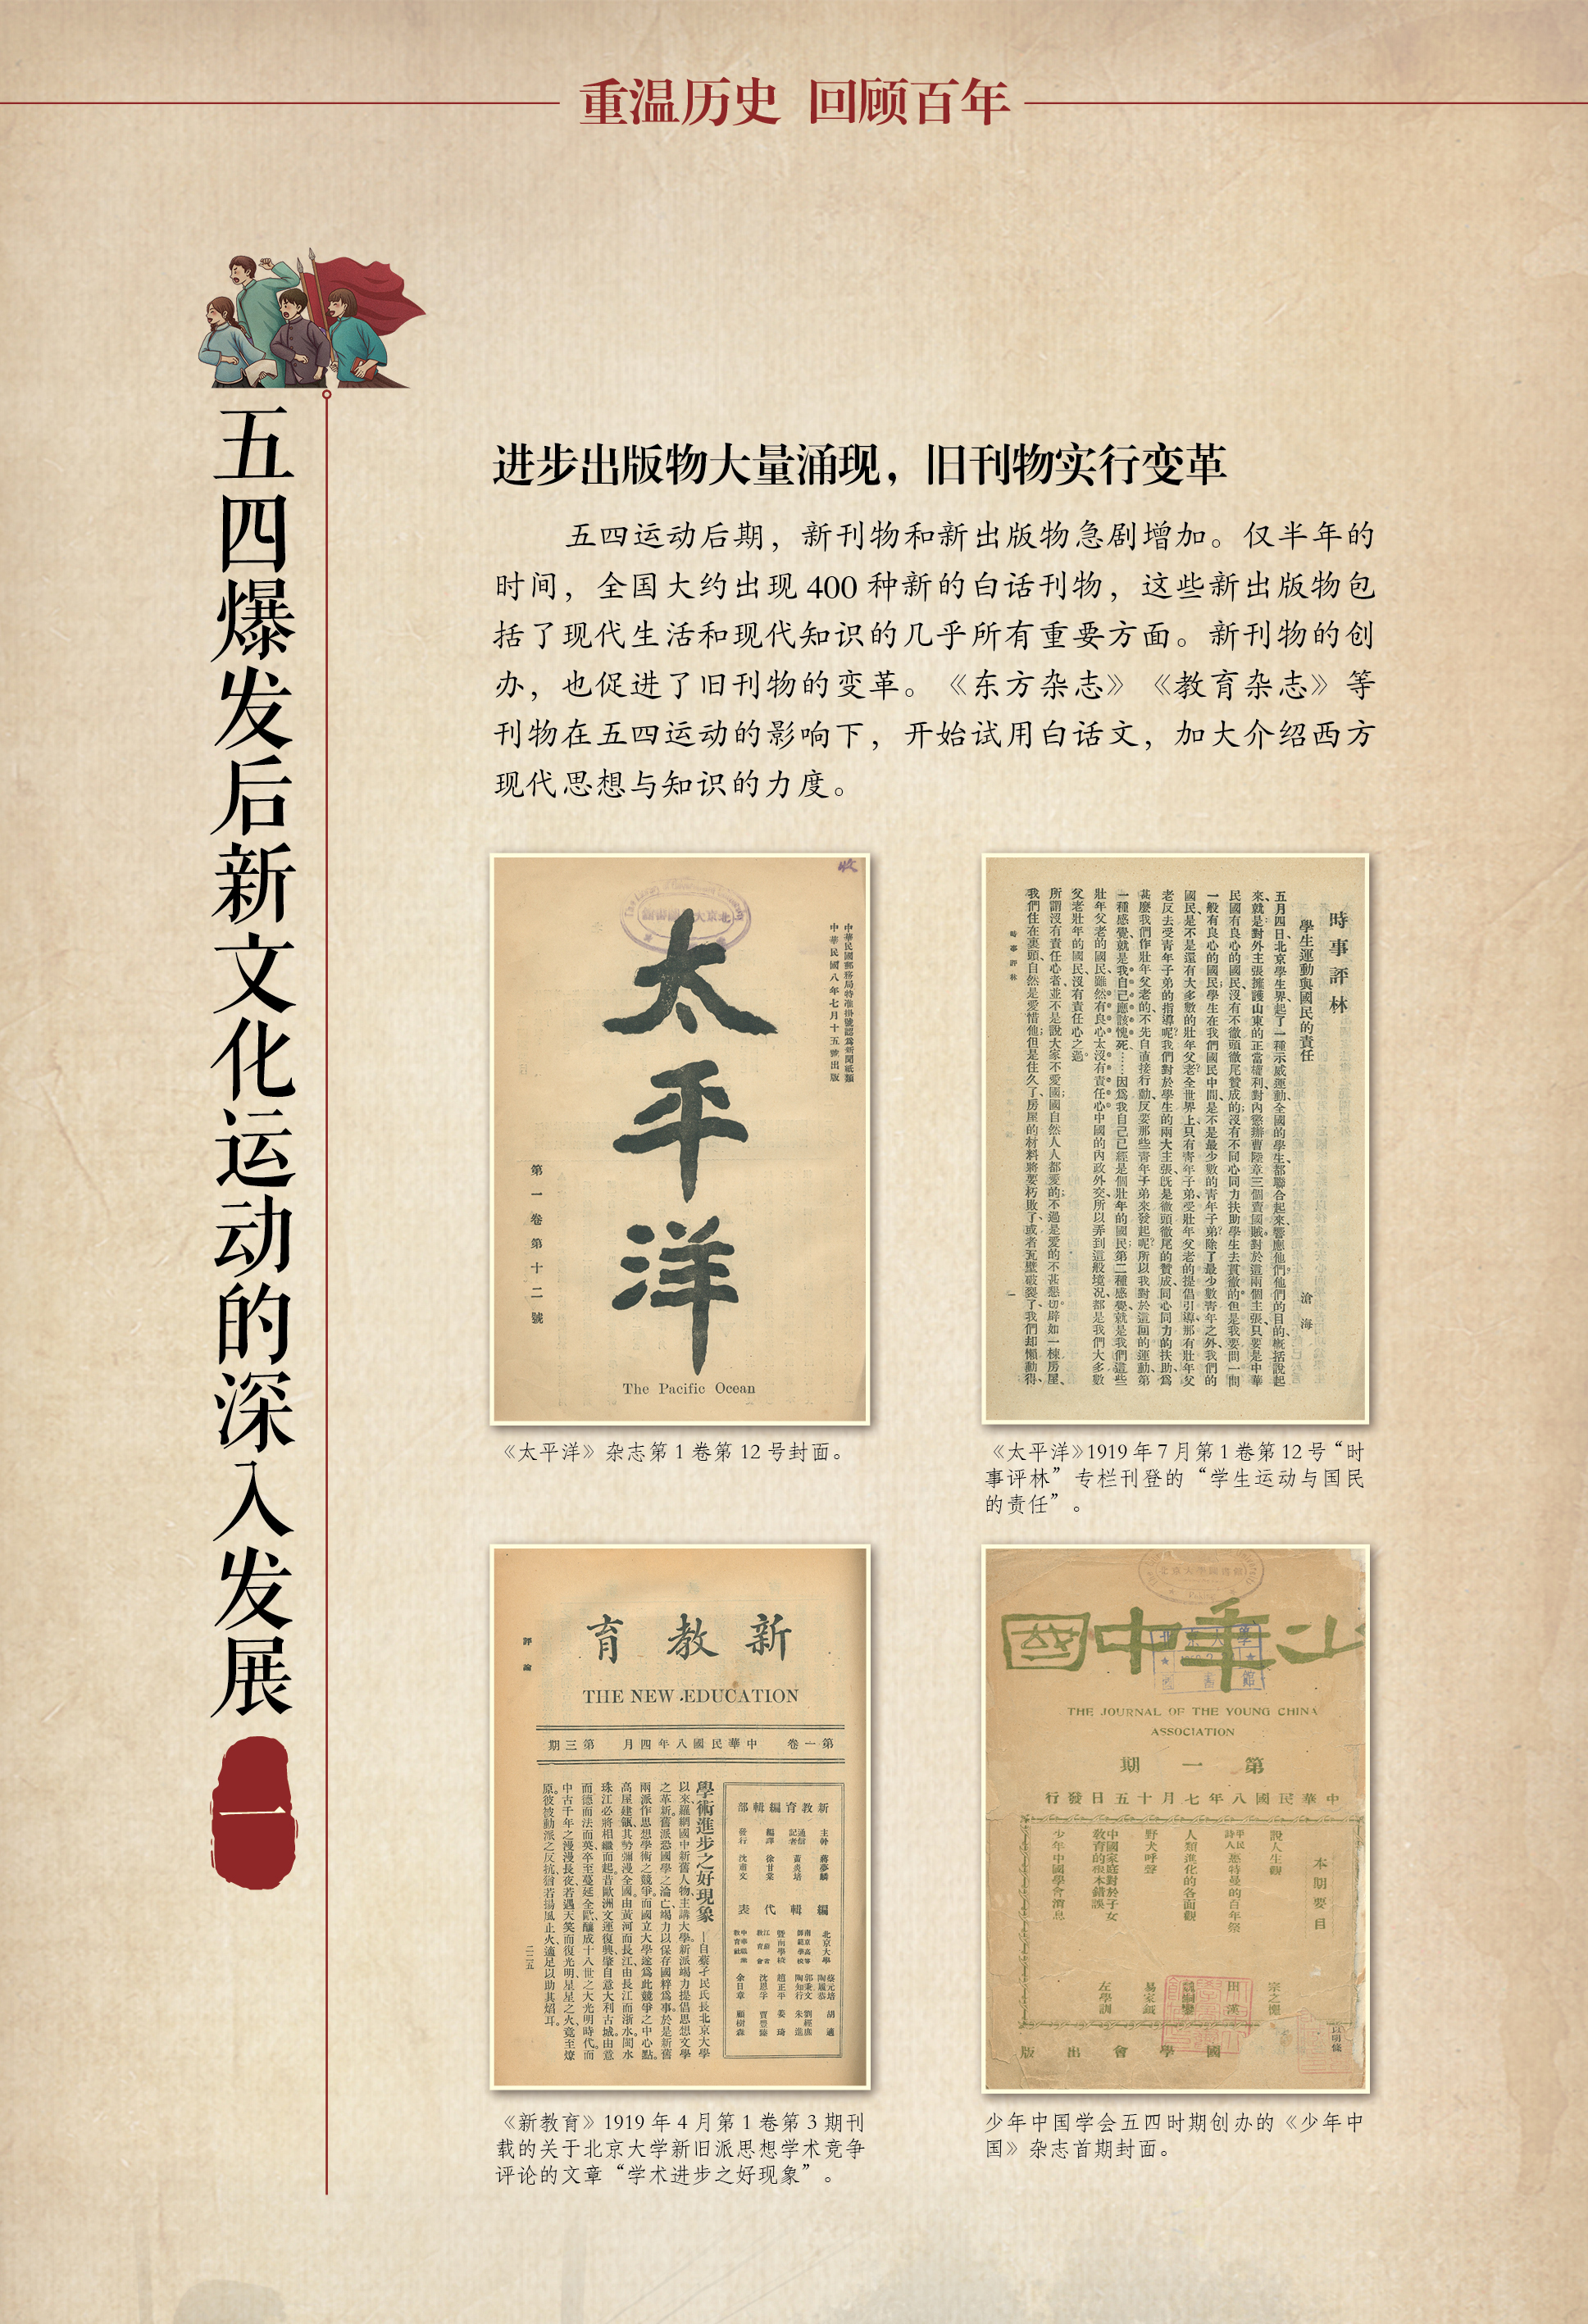 重温历史 回顾百年
五四爆发后新文化运动的深入发展
一
进步出版物大量涌现，旧刊物实行变革
五四运动后期，新刊物和新出版物急剧增加。仅半年的
时间，全国大约出现 400 种新的白话刊物，这些新出版物包
括了现代生活和现代知识的几乎所有重要方面。新刊物的创
办，也促进了旧刊物的变革。《东方杂志》《教育杂志》等
刊物在五四运动的影响下，开始试用白话文，加大介绍西方
现代思想与知识的力度。
收
中華民國郵務局特准掛號認爲新聞紙類
中華民國八年七月十五號出版
太平洋
第一卷第十二號
The Pacific Ocean
《太平洋》杂志第 1 卷第 12 号封面。
時事評林
學生運動與國民的責任
滄海
五月四日、北京學生界、起了一種示威運動、全國的學生、都聯合起來、響應他們。他們的目的、槪括說起
來、就是對外主張擁護山東的正當權利、對內懲辦曹陸章三個賣國賊。對於這兩個主張、只要是中華
民國有良心的國民、沒有不徹頭徹尾贊成的、沒有不同心同力扶助學生去貫徹的。但是我要問一問
一般有良心的國民、學生在我們國民中間、是不是最少數的靑年子弟？除了最少數靑年之外、我們的
國民、是不是還有大多數的壯年父老？全世界上、只有靑年子弟、受壯年父老的提倡引導、那有壯年父
老、反去受靑年子弟的指導呢？我們對於學生的兩大主張、旣是徹頭徹尾的贊成、同心同力的扶助、爲
甚麼我們作壯年父老的、不先自直接行動、反要那些靑年子弟來發起呢？所以我對於這回的運動、第
一種感覺、就是我自己應該愧死……因爲我自己已經是個壯年的國民。第二種感覺、就是我們這些
壯年父老的國民、雖然有良心、太沒有責任心。中國的內政外交、所以弄到這般境况、都是我們大多數
父老壯年的國民、沒有責任心之過。
所謂沒有責任心者、並不是說大家不愛國、國自然人人都愛的、不過是愛的不甚懇切。辟如一棟房屋、
我們住在裏頭、自然是愛惜他、但是住久了、房屋的材料將要朽敗了、或者瓦壁破裂了、我們却懶動得、
時事評林
一
《太平洋》1919 年 7 月第 1 卷第 12 号“时
事评林”专栏刊登的“学生运动与国民
的责任”。
評論
新教育
THE NEW EDUCATION
第一卷 中華民國八年四月 第三期
新教育編輯部
主幹 蔣夢麟
通信記者 黃炎培
編譯 徐甘棠
發行 沈肅文
編輯代表
北京大學 蔡元培 胡適 陶履恭
南京高等師範學校 郭秉文 劉經庶 陶知行 朱進
暨南學校 趙正平 姜琦
江蘇省教育會 沈恩孚 賈豐臻
中華職業教育社 余日章 顧樹森
學術進步之好現象
—自蔡孑民氏長北京大學
以來、羅網國中新舊人物、主講大學。新派竭力提倡思想文學
之革新。舊派恐國學之淪亡、竭力以保存國粹爲事。於是新舊
兩派作思想學術之競爭。而國立大學遂爲此競爭之中心點。
高屋建瓴、其勢彌漫全國。由黃河而長江、由長江而浙水、閩水
珠江、必將相繼而起。昔歐洲文運復興、肇自意大利古城。由意
而德而法而英、卒至蔓延全歐、釀成十八世之大光明時代。而
中古千年之漫漫長夜、若遇天笑而復光明。星星之火、竟至燎
原。彼被動派之反抗、猶若揚風止火、適足以助其焰耳。
二二五
《新教育》1919 年 4 月第 1 卷第 3 期刊
载的关于北京大学新旧派思想学术竞争
评论的文章“学术进步之好现象”。
少年中國
THE JOURNAL OF THE YOUNG CHINA
ASSOCIATION
第一期
中華民國八年七月十五日發行
本期要目
說人生觀 宗之櫆
平民詩人惠特曼的百年祭 田漢
人類進化的各面觀 魏嗣鑾
野犬呼聲 易家鉞
中國家庭對於子女教育的根本錯誤 左學訓
少年中國學會消息
國學會出版
少年中国学会五四时期创办的《少年中
国》杂志首期封面。